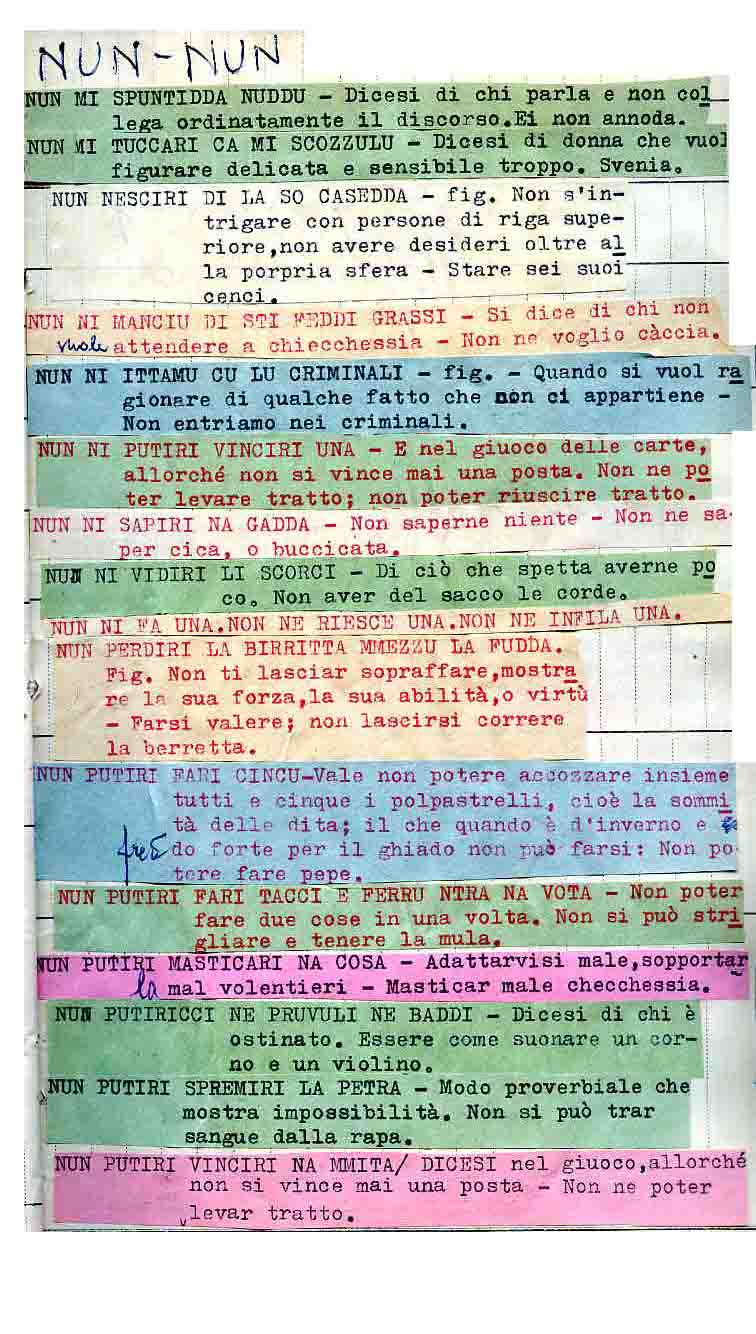 NUN-NUN
NUN MI SPUNTIDDA NUDDU - Dicesi di chi parla e non col
lega ordinatamente il discorso.Ei non annoda.
NUN MI TUCCARI CA MI SCOZZULU - Dicesi di donna che vuol
figurare delicata e sensibile troppo. Svenia.
NUN NESCIRI DI LA SO CASEDDA - fig. Non s'in-
trigare con persone di riga supe-
riore,non avere desideri oltre al
la porpria sfera - Stare sei suoi
cenci.
NUN NI MANCIU DI STI FEDDI GRASSI - Si dice di chi non
vuole attendere a chiecchessia - Non ne voglio càccia.
NUN NI ITTAMU CU LU CRIMINALI - fig. - Quando si vuol ra
gionare di qualche fatto che non ci appartiene -
Non entriamo nei criminali.
NUN NI PUTIRI VINCIRI UNA - E nel giuoco delle carte,
allorché non si vince mai una posta. Non ne po
ter levare tratto; non poter riuscire tratto.
NUN NI SAPIRI NA GADDA - Non saperne niente - Non ne sa-
per cica, o buccicata.
NUN NI VIDIRI LI SCORCI - Di ciò che spetta averne po
co. Non aver del sacco le corde.
NUN NI FA UNA.NON NE RIESCE UNA.NON NE INFILA UNA.
NUN PERDIRI LA BIRRITTA MMEZZU LA FUDDA.
Fig. Non ti lasciar sopraffare,mostra
re la sua forza,la sua abilità,o virtù
- Farsi valere; non lascirsi correre
la berretta.
NUN PUTIRI FARI CINCU-Vale non potere accozzare insieme
tutti e cinque i polpastrelli, cioè la sommi
tà delle dita; il che quando è d'inverno e
fred do forte per il ghiado non può farsi: Non po-
tere fare pepe.
NUN PUTIRI FARI TACCI E FERRU NTRA NA VOTA - Non poter
fare due cose in una volta. Non si può stri
gliare e tenere la mula.
NUN PUTIRI MASTICARI NA COSA - Adattarvisi male,sopportar
la mal volentieri - Masticar male checchessia.
NUN PUTIRICCI NE PRUVULI NE BADDI - Dicesi di chi è
ostinato. Essere come suonare un cor-
no e un violino.
NUN PUTIRI SPREMIRI LA PETRA - Modo proverbiale che
mostra impossibilità. Non si può trar
sangue dalla rapa.
NUN PUTIRI VINCIRI NA MMITA/ DICESI nel giuoco,allorché
non si vince mai una posta - Non ne poter
levar tratto.